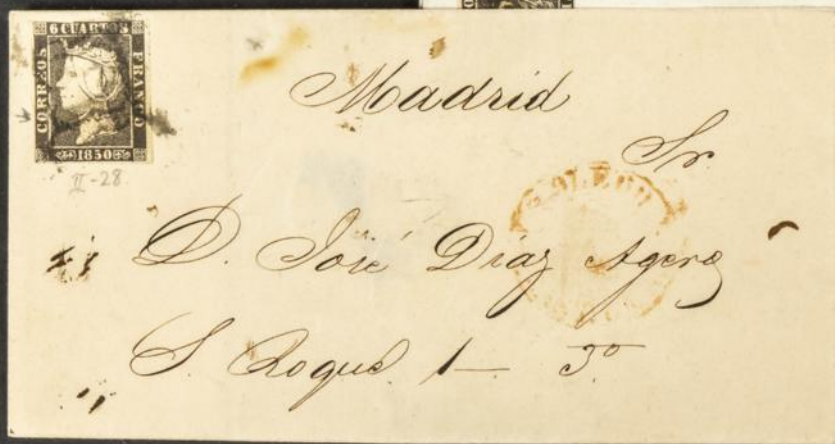 6 CUARTOS
CORREOS
FRANCO
1850
II-28
Madrid
Sr.
D. José Díaz Agero
S. Roque 1 — 3º